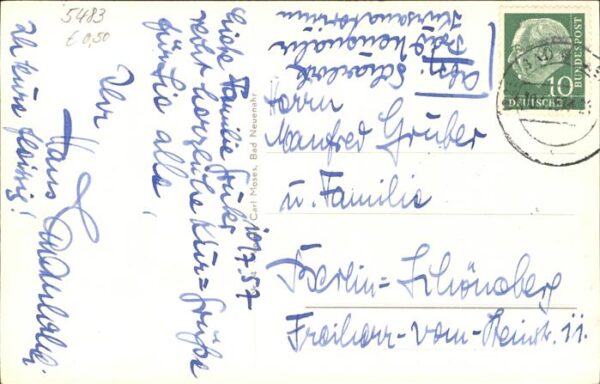 5483
€ 0,50
10
BUNDESPOST
DEUTSCHE
Abs.
Bad Neuenahr
Kursanatorium
Carl Moses, Bad Neuenahr
10.7.57
Liebe Familie
recht herzliche Kur=Grüße
für Sie alle,
Ihr
Hans
Ich kure fleissig!
Herrn
Manfred Gruber
u. Familie
Berlin=Schöneberg
Freiherr-vom-Steinstr. 11.